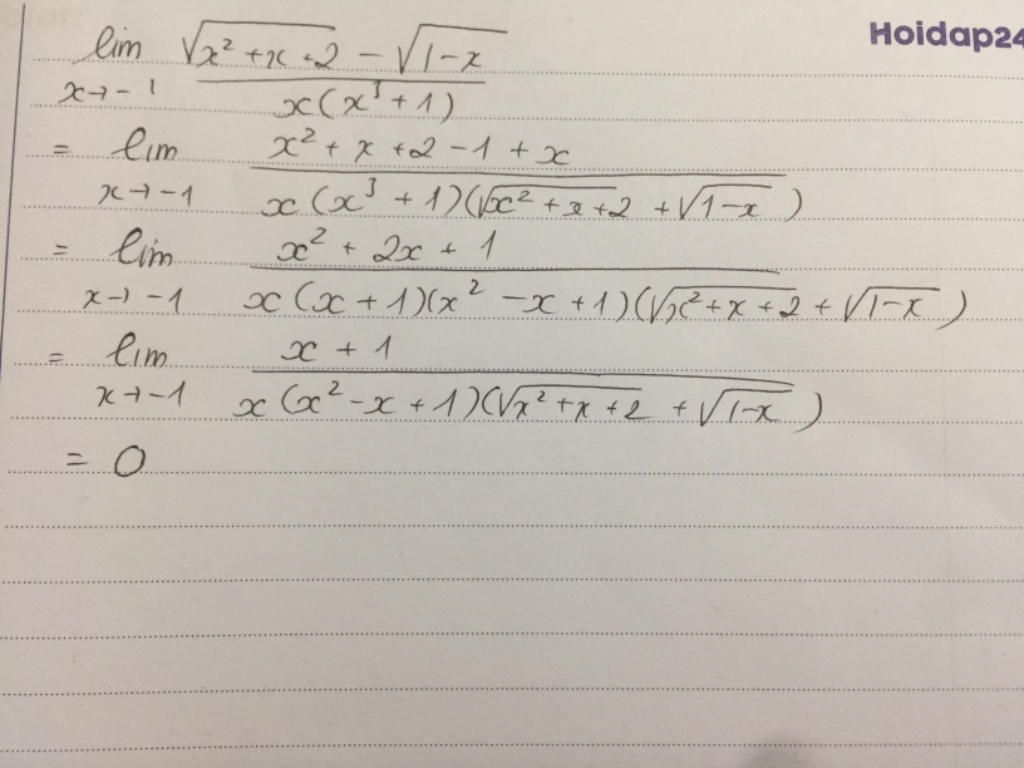 Hoidap24
lim √(x² + x + 2) - √(1-x)
x→-1 x(x³ + 1)
= lim x² + x + 2 - 1 + x
x→-1 x(x³ + 1)(√(x² + x + 2) + √(1-x))
= lim x² + 2x + 1
x→-1 x(x + 1)(x² - x + 1)(√(x² + x + 2) + √(1-x))
= lim x + 1
x→-1 x(x² - x + 1)(√(x² + x + 2) + √(1-x))
= 0